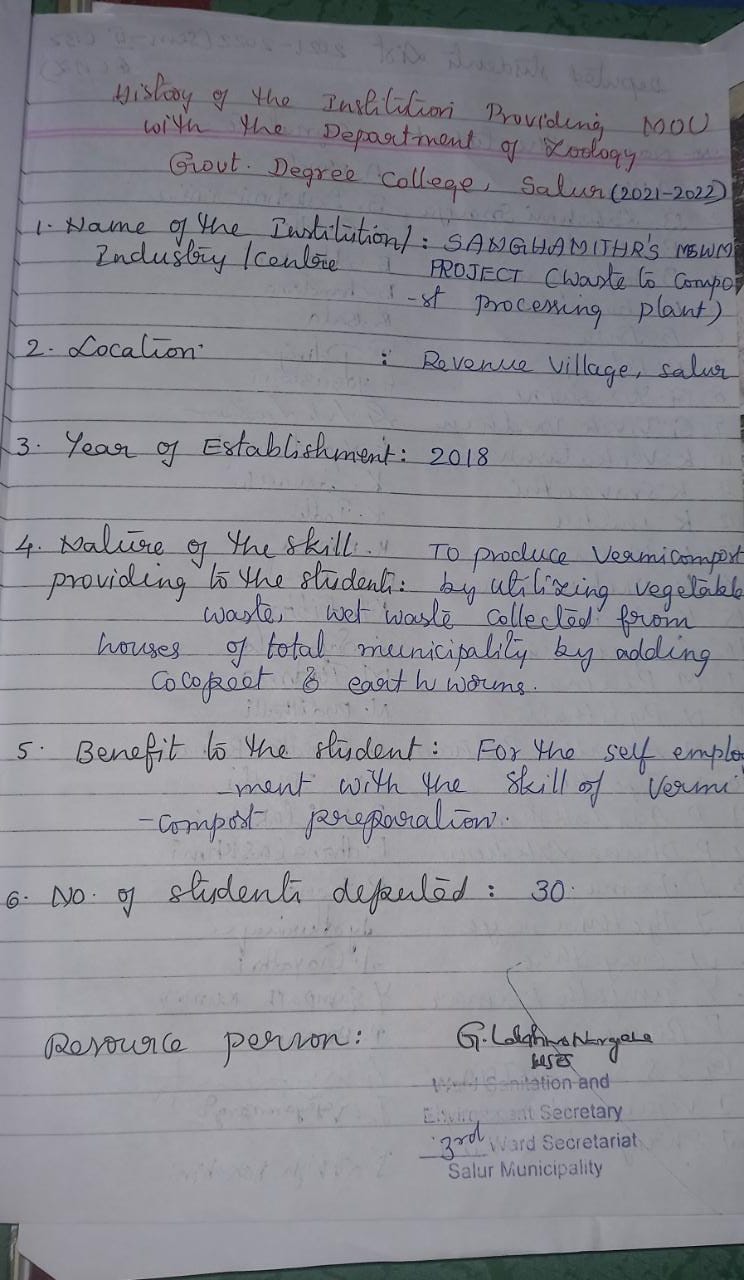 History of the Institution Providing MOU
with the Department of Zoology
Govt. Degree College, Salur (2021-2022)
1. Name of the Institution/ : SANGHAMITHR'S MSWM
Industry / Centre : PROJECT (Waste to Compo
-st processing plant)
2. Location : Revenue Village, Salur
3. Year of Establishment : 2018
4. Nature of the skill . To produce Vermicompost
providing to the students : by utilizing vegetable
waste, wet waste collected from
houses of total municipality by adding
Cocopeet & earth worms.
5. Benefit to the student : For the self emplo
-ment with the skill of Vermi
-compost preparation.
6. No. of students deputed : 30
Resource person :
Ward Sanitation and
Environment Secretary
3rd Ward Secretariat
Salur Municipality